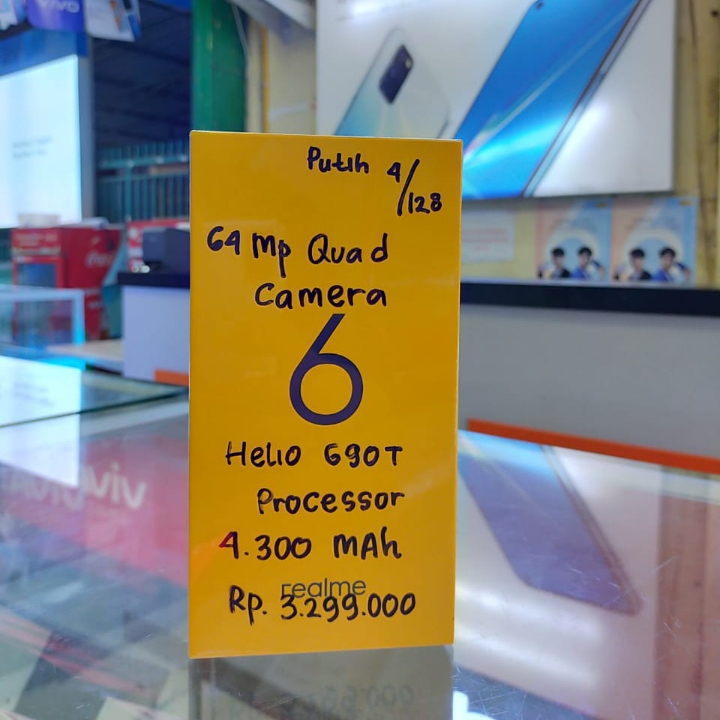 vivo
Putih 4/128
64 Mp Quad
Camera
6
Helio G90T
Processor
4.300 MAh
realme
Rp. 3.299.000